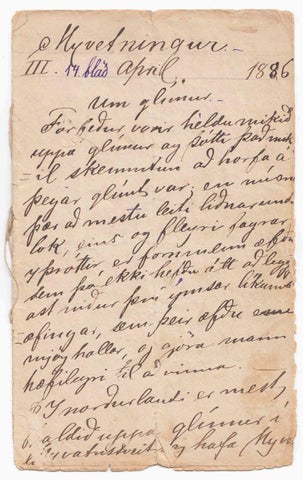 Myvetningur. —
III. 14 blað April. 1886
Um glímur. —
Forfeður vorir héldu mikið
uppá glímur og þótti það mik-
il skemmtun að horfa á
þegar glímt var; en nú eru
þær að mestu leiti liðnar undir
lok, eins og fleyri fagrar
yþróttir er fornmenn æfðu
sem þó ekki hefðu átt að legg-
ast niður því ýmsar líkams
æfingar, sem þeir æfðu eru
mjög hollar, og gjöra mann
hæfilegri til að vinna.
Í norðurlandi er mest
haldið uppá glímur í
og hafa Myv